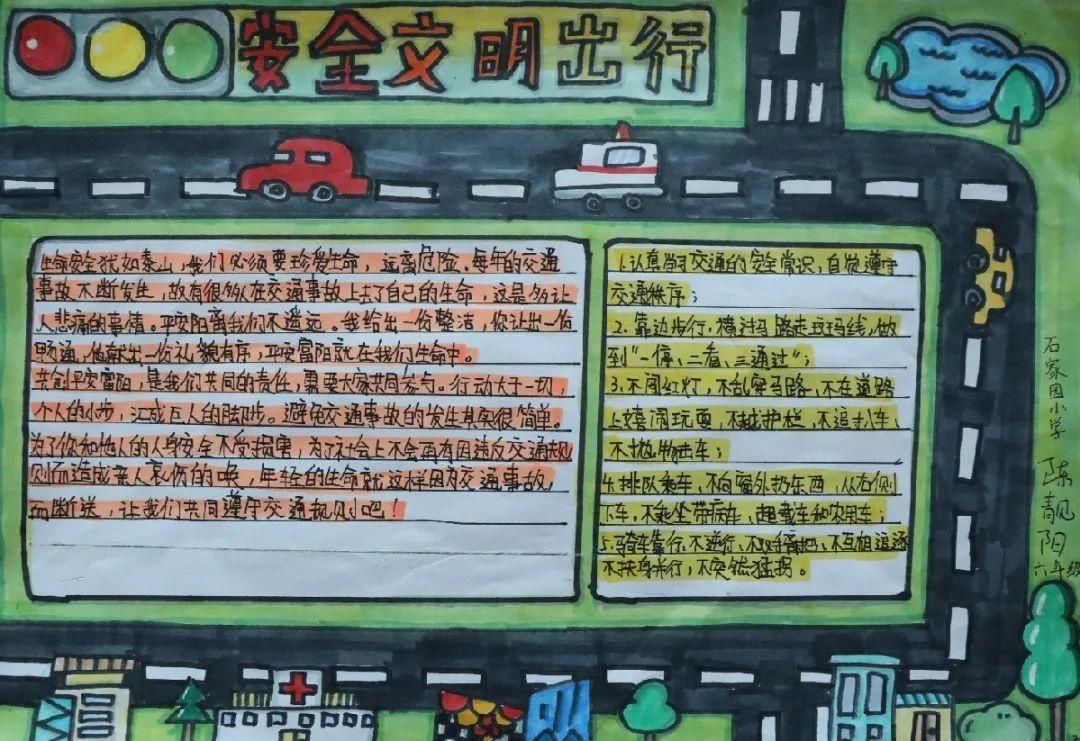 安全文明出行
生命安全犹如泰山，我们必须要珍爱生命，远离危险。每年的交通
事故不断发生，故有很多人在交通事故上去了自己的生命，这是多让
人悲痛的事情。平安阳离我们不遥远。我给出一份整洁，你让出一份
畅通，他献出一份礼貌有序，平安富阳就在我们生命中。
共创平安富阳，是我们共同的责任，需要大家共同参与。行动大于一切，
个人的小步，汇成巨人的脚步。避免交通事故的发生其实很简单。
为了你和他人的人身安全不受损害，为了社会上不会再有因违反交通规
则而造成亲人哀伤的哭，年轻的生命就这样因为交通事故，
而断送，让我们共同遵守交通规则吧！
1.认真学习交通的安全常识，自觉遵守
交通秩序；
2.靠边步行，横过马路走斑马线，做
到“一停、二看、三通过”；
3.不闯红灯，不乱穿马路、不在道路
上嬉闹玩耍，不越护栏，不追扒车
不抛物击车；
4.排队乘车，不向窗外扔东西，从右侧
下车，不乘坐带病车、超载车和农用车；
5.骑车靠行、不逆行、不互相追逐
不扶身并行，不突然猛拐。
石家园小学
陈靓阳
六年级